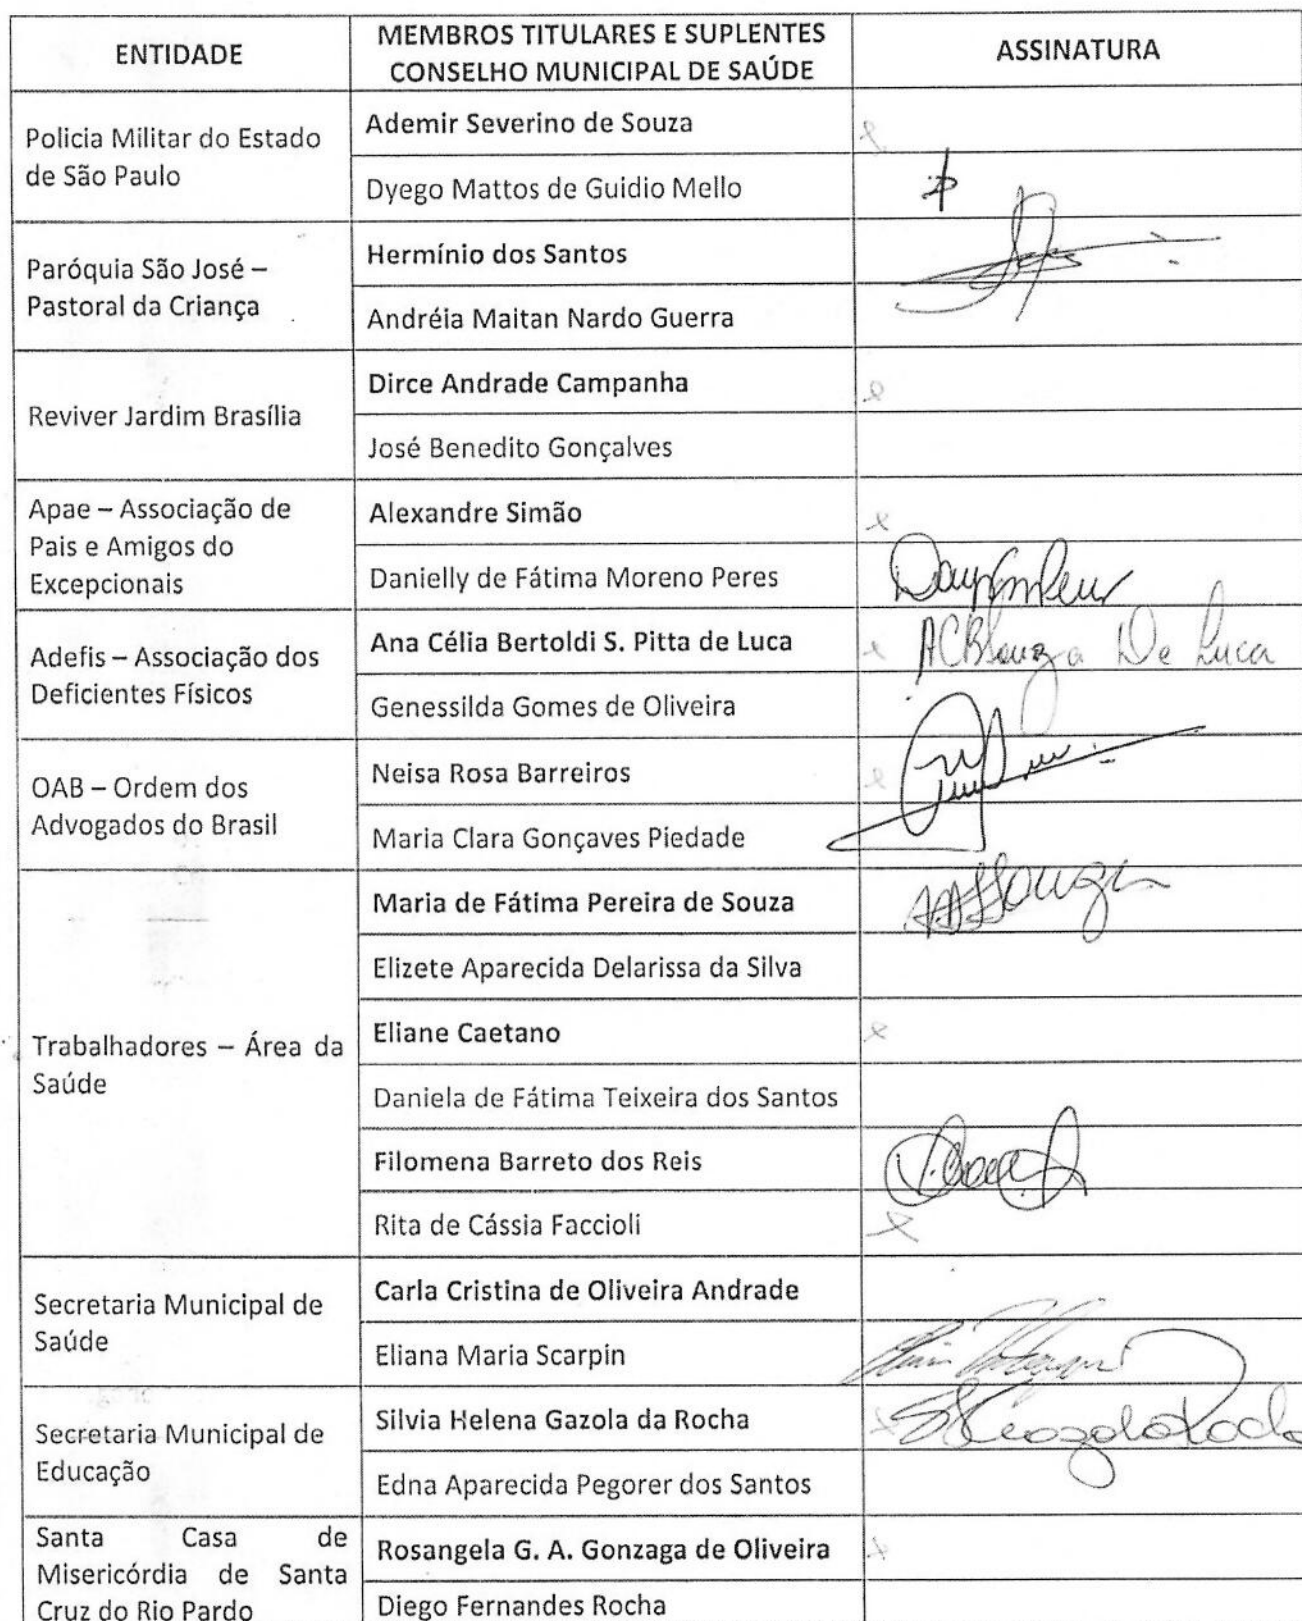 ENTIDADE
MEMBROS TITULARES E SUPLENTES
CONSELHO MUNICIPAL DE SAÚDE
ASSINATURA
Policia Militar do Estado
de São Paulo
Ademir Severino de Souza
Dyego Mattos de Guidio Mello
Paróquia São José –
Pastoral da Criança
Hermínio dos Santos
Andréia Maitan Nardo Guerra
Reviver Jardim Brasília
Dirce Andrade Campanha
José Benedito Gonçalves
Apae – Associação de
Pais e Amigos do
Excepcionais
Alexandre Simão
Danielly de Fátima Moreno Peres
Adefis – Associação dos
Deficientes Físicos
Ana Célia Bertoldi S. Pitta de Luca
ACBSouza De Luca
Genessilda Gomes de Oliveira
OAB – Ordem dos
Advogados do Brasil
Neisa Rosa Barreiros
Maria Clara Gonçaves Piedade
Trabalhadores – Área da
Saúde
Maria de Fátima Pereira de Souza
Elizete Aparecida Delarissa da Silva
Eliane Caetano
Daniela de Fátima Teixeira dos Santos
Filomena Barreto dos Reis
Rita de Cássia Faccioli
Secretaria Municipal de
Saúde
Carla Cristina de Oliveira Andrade
Eliana Maria Scarpin
Secretaria Municipal de
Educação
Silvia Helena Gazola da Rocha
Edna Aparecida Pegorer dos Santos
Santa Casa de
Misericórdia de Santa
Cruz do Rio Pardo
Rosangela G. A. Gonzaga de Oliveira
Diego Fernandes Rocha